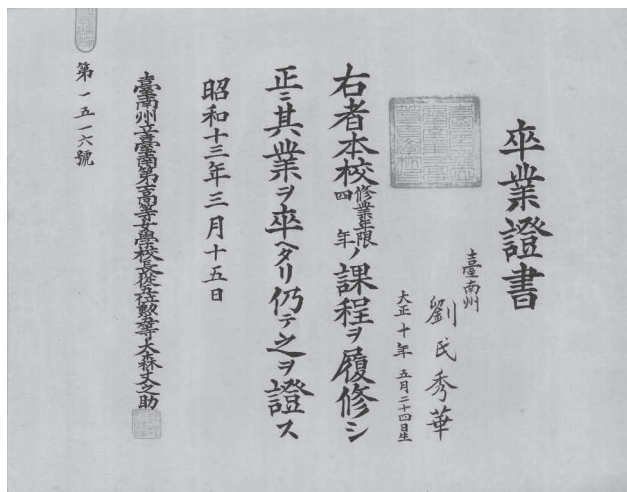 卒業證書
臺南州
劉氏秀華
大正十年五月二十四日生
右者本校修業年限四年ノ課程ヲ履修シ
正ニ其業ヲ卒ヘタリ仍テ之ヲ證ス
昭和十三年三月十五日
臺南州立臺南第二高等女學校長從五位勳五等大森丈之助
第一五一六號